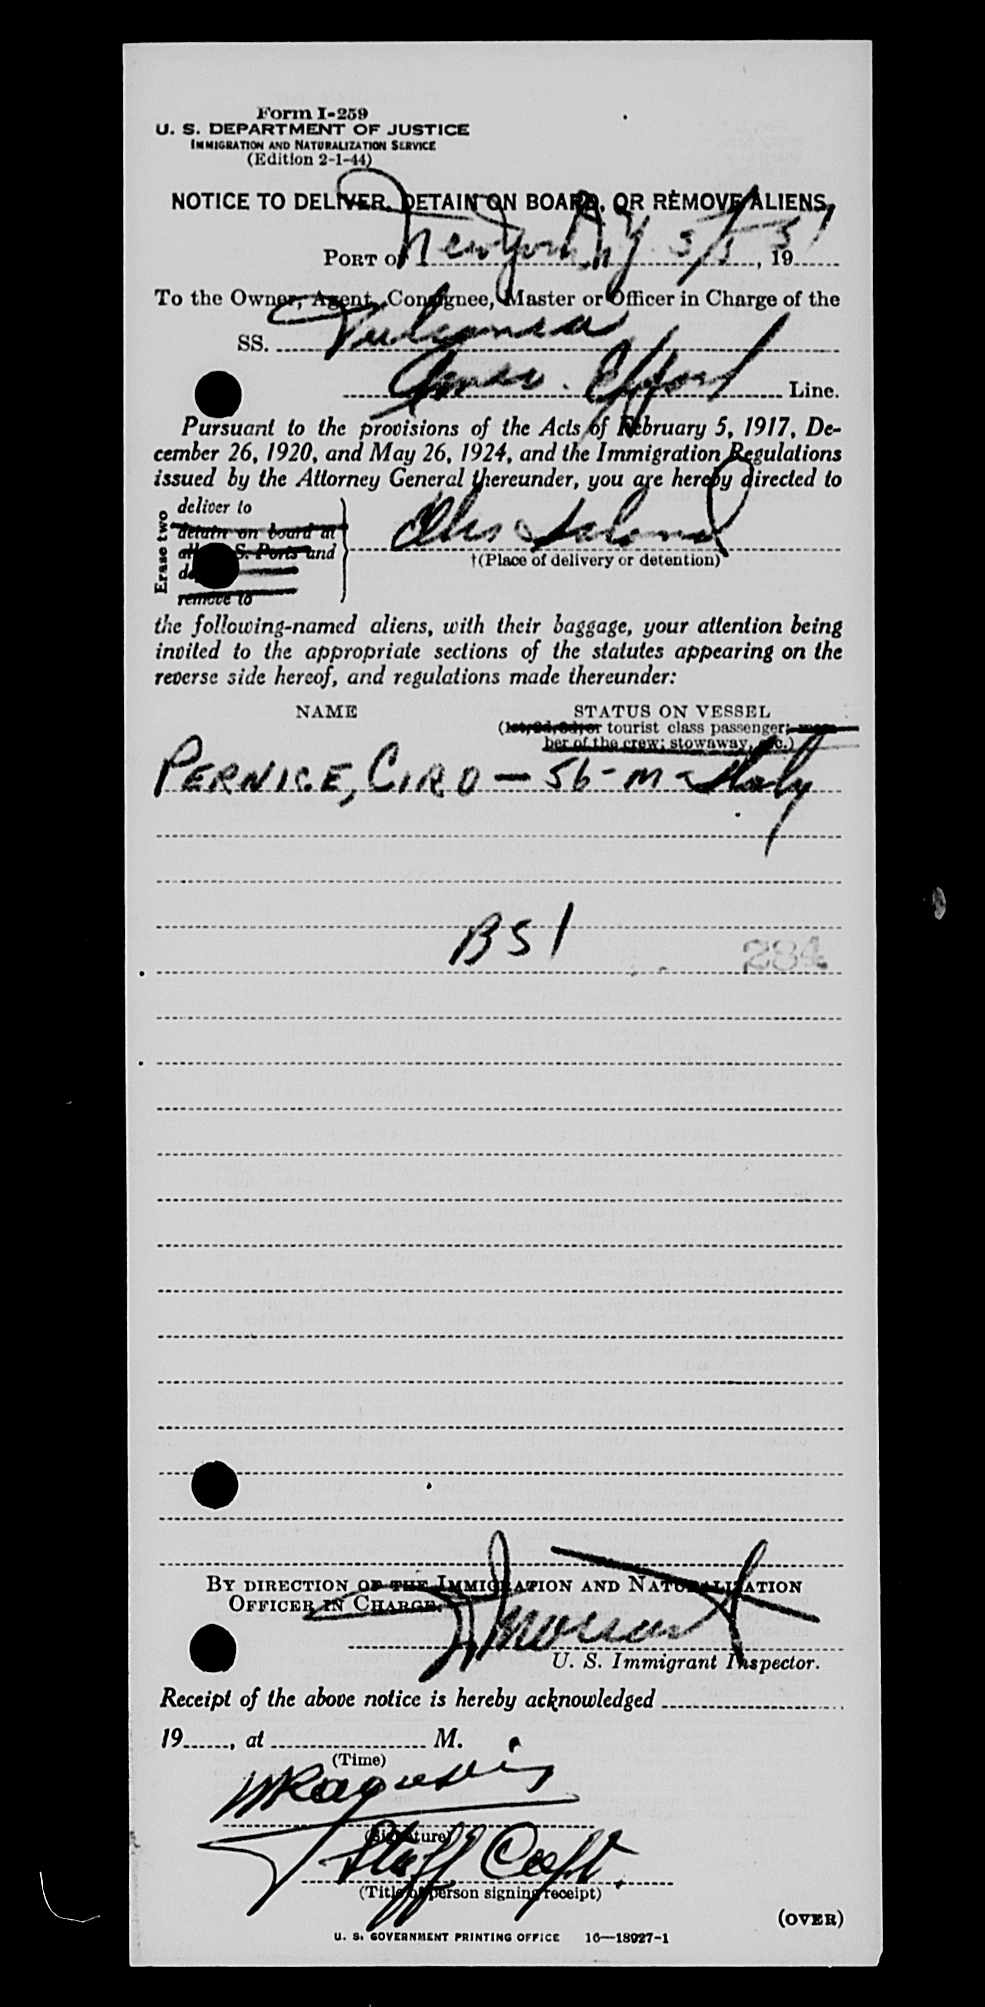 Form I-259
U. S. DEPARTMENT OF JUSTICE
IMMIGRATION AND NATURALIZATION SERVICE
(Edition 2-1-44)
NOTICE TO DELIVER, DETAIN ON BOARD, OR REMOVE ALIENS
PORT OF New York, NY 5/5, 1951
To the Owner, Agent, Consignee, Master or Officer in Charge of the
SS. Vulcania
Amer. Export Line.
Pursuant to the provisions of the Acts of February 5, 1917, De-
cember 26, 1920, and May 26, 1924, and the Immigration Regulations
issued by the Attorney General thereunder, you are hereby directed to
Erase two
deliver to
detain on board at
all U. S. Ports and
remove to
Ellis Island
†(Place of delivery or detention)
the following-named aliens, with their baggage, your attention being
invited to the appropriate sections of the statutes appearing on the
reverse side hereof, and regulations made thereunder:
NAME STATUS ON VESSEL
(1st, 2d, 3d, or tourist class passenger; mem-
ber of the crew; stowaway, etc.)
PERNICE, CIRO - 56 - M - Italy
BSI
284
BY DIRECTION OF THE IMMIGRATION AND NATURALIZATION
OFFICER IN CHARGE.
U. S. Immigrant Inspector.
Receipt of the above notice is hereby acknowledged
19......, at M.
(Time)
(Signature)
Staff Capt.
(Title of person signing receipt)
(OVER)
U. S. GOVERNMENT PRINTING OFFICE 16—18927-1